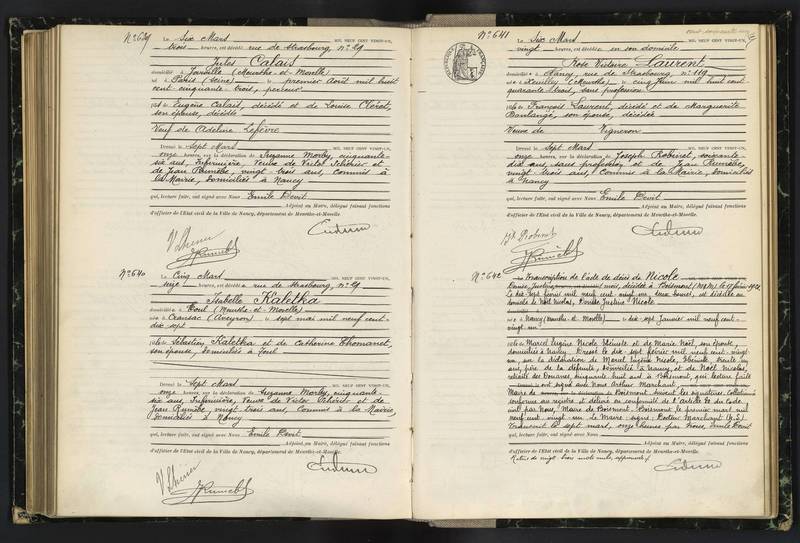 N° 639 Le Six Mars MIL NEUF CENT VINGT-UN,
trois heures, est décédé rue de Strasbourg, n° 29
Jules Calais
domicilié à Joinville (Meurthe-et-Moselle)
né à Paris (Seine) le premier Août mil huit
cent cinquante-trois,
fils de Eugène Calais, décédé et de Louise Clérot,
son épouse, décédée
Veuf de Adeline Lefèvre
Dressé le Sept Mars MIL NEUF CENT VINGT-UN,
onze heures, sur la déclaration de Suzanne Morby, cinquante-
six ans, Infirmière, Veuve de Victor
de Jean Rumébe, vingt-trois ans, commis à
la Mairie, Domiciliés à Nancy
qui, lecture faite, ont signé avec Nous Emile Devit
Adjoint au Maire, délégué faisant fonctions
d'officier de l'Etat civil de la Ville de Nancy, département de Meurthe-et-Moselle.
N° 640 Le Cinq Mars MIL NEUF CENT VINGT-UN,
seize heures, est décédée rue de Strasbourg, n° 29
Isabelle Kaletka
domiciliée à Toul (Meurthe-et-Moselle)
née à Cransac (Aveyron) le sept mai mil neuf cent-
dix-sept
fille de Sébastien Kaletka et de Catherine Thomanet,
son épouse, domiciliés à Toul
Dressé le Sept Mars MIL NEUF CENT VINGT-UN,
onze heures, sur la déclaration de Suzanne Morby, cinquante-
six ans, Infirmière, Veuve de Victor et de
Jean Rumébe, vingt-trois ans, Commis à la Mairie,
Domiciliés à Nancy
qui, lecture faite, ont signé avec Nous Emile Devit
Adjoint au Maire, délégué faisant fonctions
d'officier de l'Etat civil de la Ville de Nancy, département de Meurthe-et-Moselle.
N° 641 Le Six Mars MIL NEUF CENT VINGT-UN,
vingt heures, est décédée en son domicile
Rose Victoire Laurent
domiciliée à Nancy, rue de Strasbourg, n° 119
née à (Meurthe) le cinq Juin mil huit cent
quarante-trois, sans profession
fille de François Laurent, décédé et de Marguerite
Boulangé, son épouse, décédée
Veuve de Vigneron
Dressé le Sept Mars MIL NEUF CENT VINGT-UN,
onze heures, sur la déclaration de Joseph Robinet, soixante-
dix ans, sans profession et de Jean Rumébe,
vingt-trois ans, Commis à la Mairie, domiciliés
à Nancy
qui, lecture faite, ont signé avec Nous Emile Devit
Adjoint au Maire, délégué faisant fonctions
d'officier de l'Etat civil de la Ville de Nancy, département de Meurthe-et-Moselle.
N° 642 Transcription de l'acte de décès de Nicole
Louise Justine décédée à Boismont (M&M) le 17 février 1921
Le dix-sept février mil neuf cent vingt-un heures, est décédée au
domicile de Noël Nicolas, Louise Justine Nicole
née à Nancy (Meurthe-et-Moselle) le dix-sept Janvier mil neuf cent-
vingt-un
fille de Marcel Eugène Nicole, Ebéniste et de Marie Noël, son épouse,
domiciliés à Nancy. Dressé le dix-sept février mil neuf cent vingt-
un, sur la déclaration de Marcel Eugène Nicole, Ebéniste, trente
ans, père de la défunte, domicilié à Nancy, et de Noël Nicolas,
retraité des Douanes, cinquante-huit ans à Boismont, qui lecture faite
ont signé avec Nous Arthur Marchant,
Maire de Boismont. Suivent les signatures. Collationné
conforme au registre et délivré en conformité de l'Article 80 du Code
civil par Nous, Maire de Boismont. Boismont le premier mars mil
neuf cent vingt-un. Le Maire signé: Docteur Marchant (L.S.)
Transcrit le sept mars, onze heures par Nous, Emile Devit
qui, lecture faite, ont signé avec Nous
Adjoint au Maire, délégué faisant fonctions
d'officier de l'Etat civil de la Ville de Nancy, département de Meurthe-et-Moselle.
Rature de vingt-trois mots nuls, approuvée